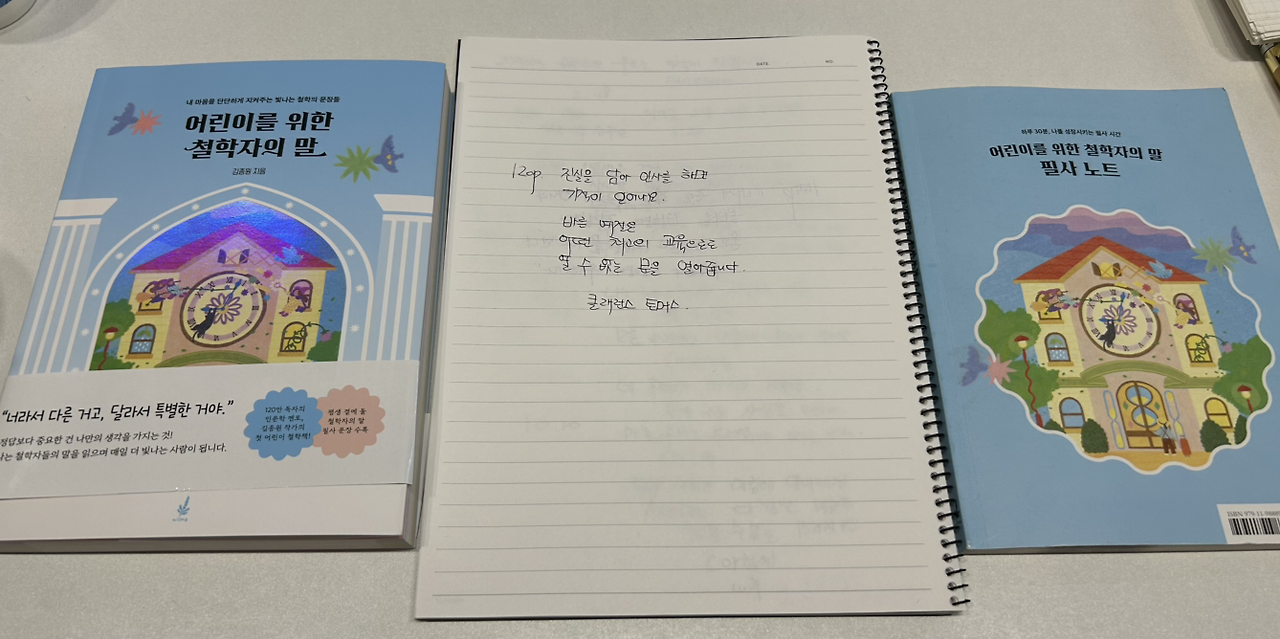 내 마음을 단단하게 지켜주는 빛나는 철학의 문장들
어린이를 위한
철학자의 말
김종원 지음
“너라서 다른 거고, 달라서 특별한 거야.”
정답보다 중요한 건 나만의 생각을 가지는 것!
나는 철학자들의 말을 읽으며 매일 더 빛나는 사람이 됩니다.
120만 독자의
인문학 멘토,
김종원 작가의
첫 어린이 철학책!
평생 곁에 둘
철학자의 말
필사 문장 수록
DATE
NO.
120p. 진실을 담아 인사를 해보
기적이 일어나요.
바른 예절은
어떤 최고의 교육으로도
열 수 없는 문을 열어줍니다.
클래런스 토머스.
하루 30분, 나를 성장시키는 필사 시간
어린이를 위한 철학자의 말
필사 노트
ISBN 979-11-9888